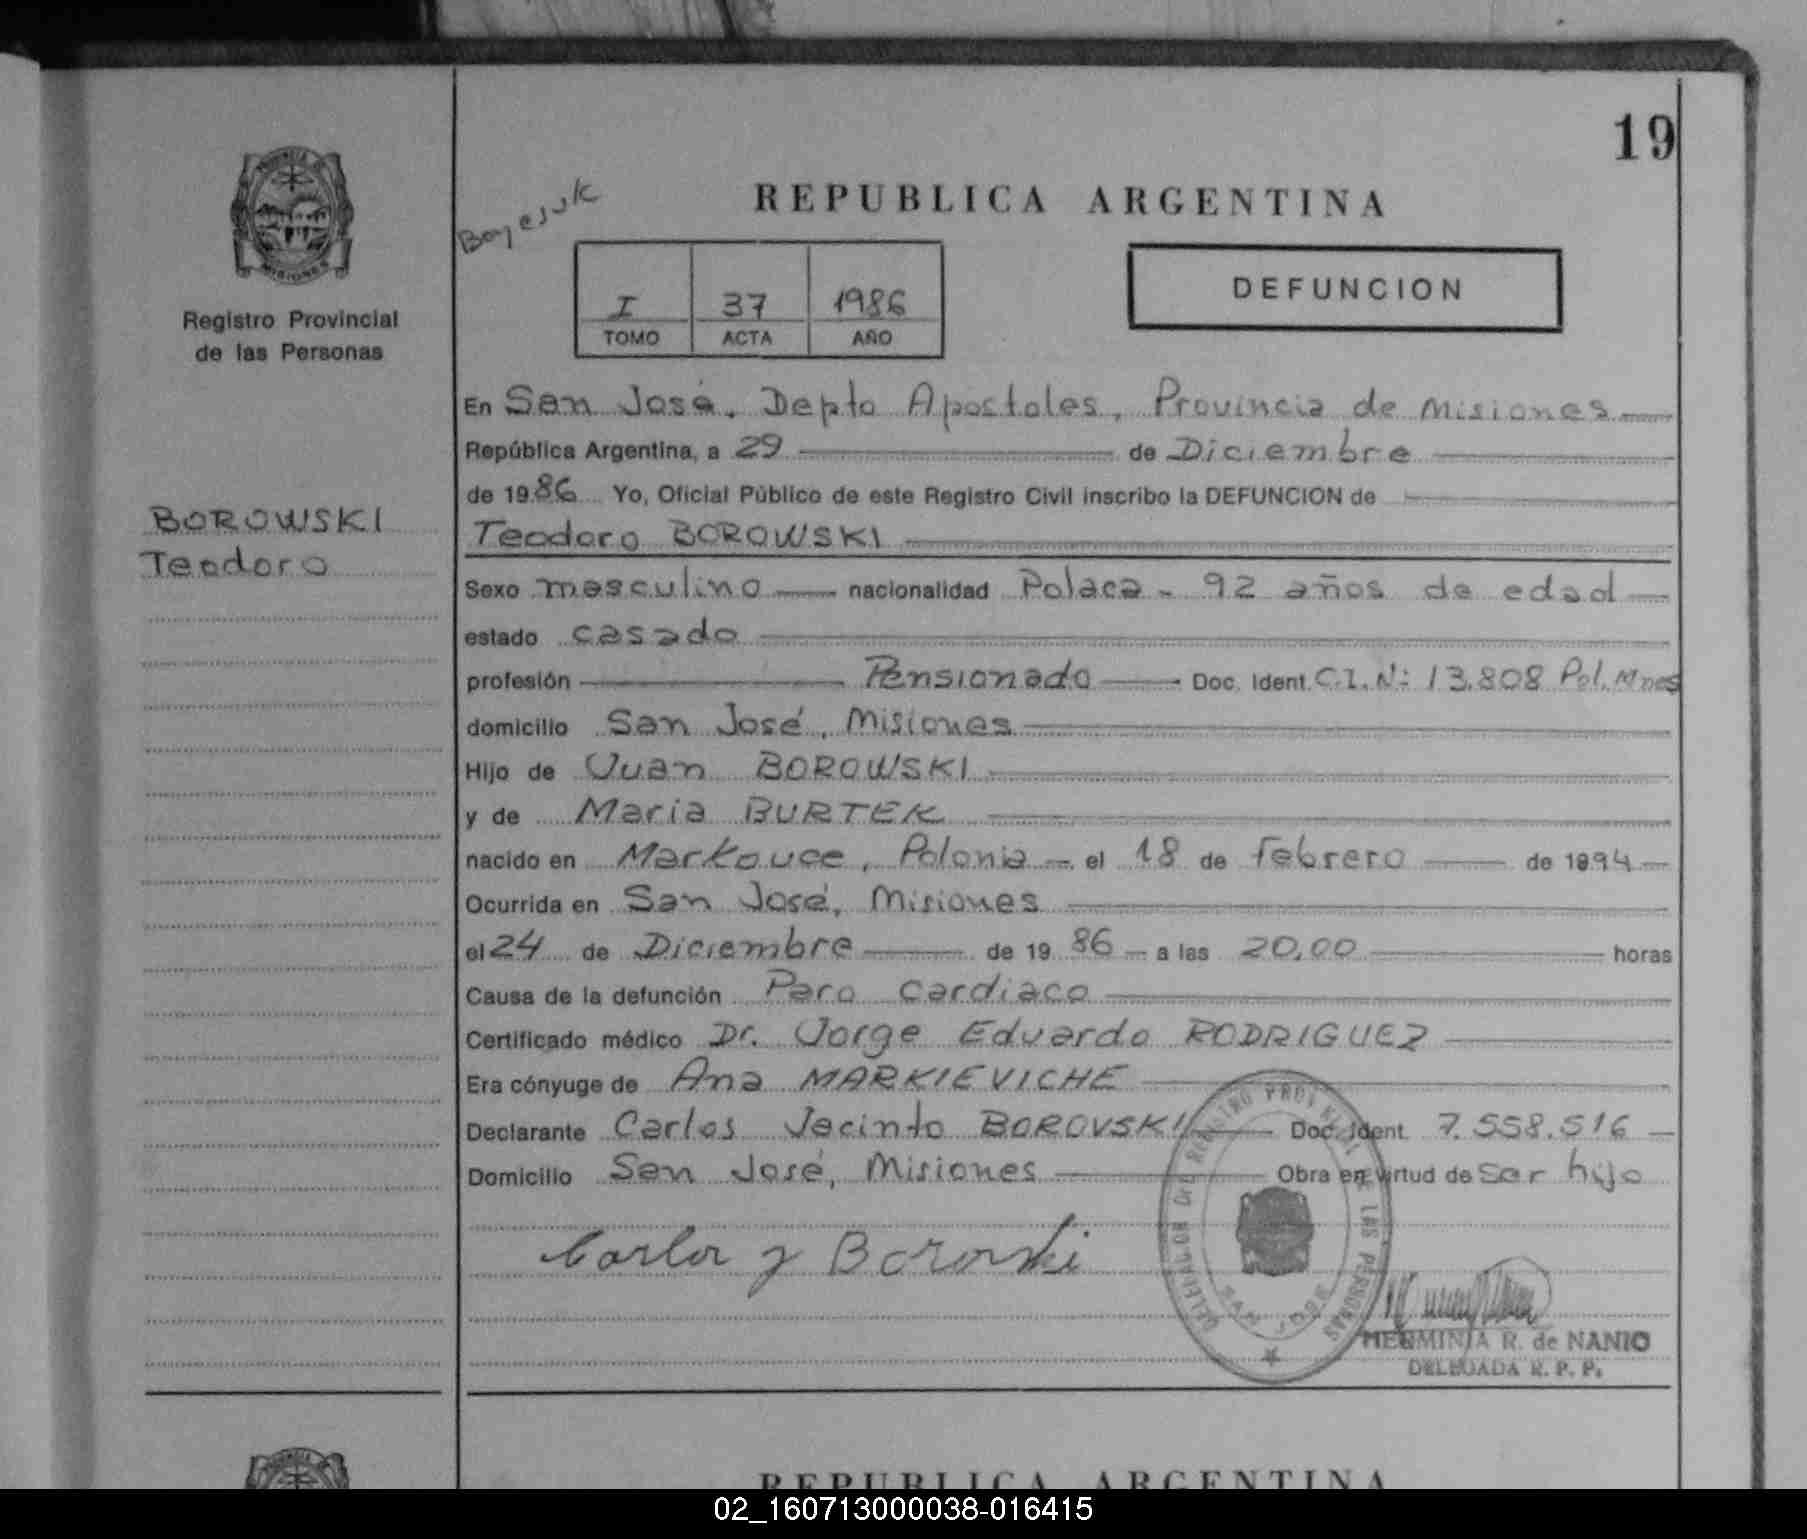 19
REPUBLICA ARGENTINA
PROVINCIA DE
MISIONES
Registro Provincial
de las Personas
I 37 1986
TOMO ACTA AÑO
DEFUNCION
BOROWSKI
Teodoro
En San José, Depto Apostoles, Provincia de Misiones
República Argentina, a 29 de Diciembre
de 1986 Yo, Oficial Público de este Registro Civil inscribo la DEFUNCION de
Teodoro BOROWSKI
Sexo masculino nacionalidad Polaca - 92 años de edad
estado casado
profesión Pensionado Doc. Ident. C.I.Nº: 13.808 Pol. Mnes
domicilio San José, Misiones
Hijo de Juan BOROWSKI
y de Maria BURTEK
nacido en Markouce, Polonia el 18 de Febrero de 1894
Ocurrida en San José, Misiones
el 24 de Diciembre de 1986 a las 20,00 horas
Causa de la defunción Paro cardiaco
Certificado médico Dr. Jorge Eduardo RODRIGUEZ
Era cónyuge de Ana MARKIEVICHE
Declarante Carlos Jacinto BOROVSKI Doc. Ident. 7.558.516
Domicilio San José, Misiones Obra en virtud de ser hijo
Carlos J Borowski
DELEGACION DEL REGISTRO PROVINCIAL DE LAS PERSONAS
SAN JOSE
HERMINIA R. de NANIO
DELEGADA R. P. P.
REPUBLICA ARGENTINA
02_160713000038-016415